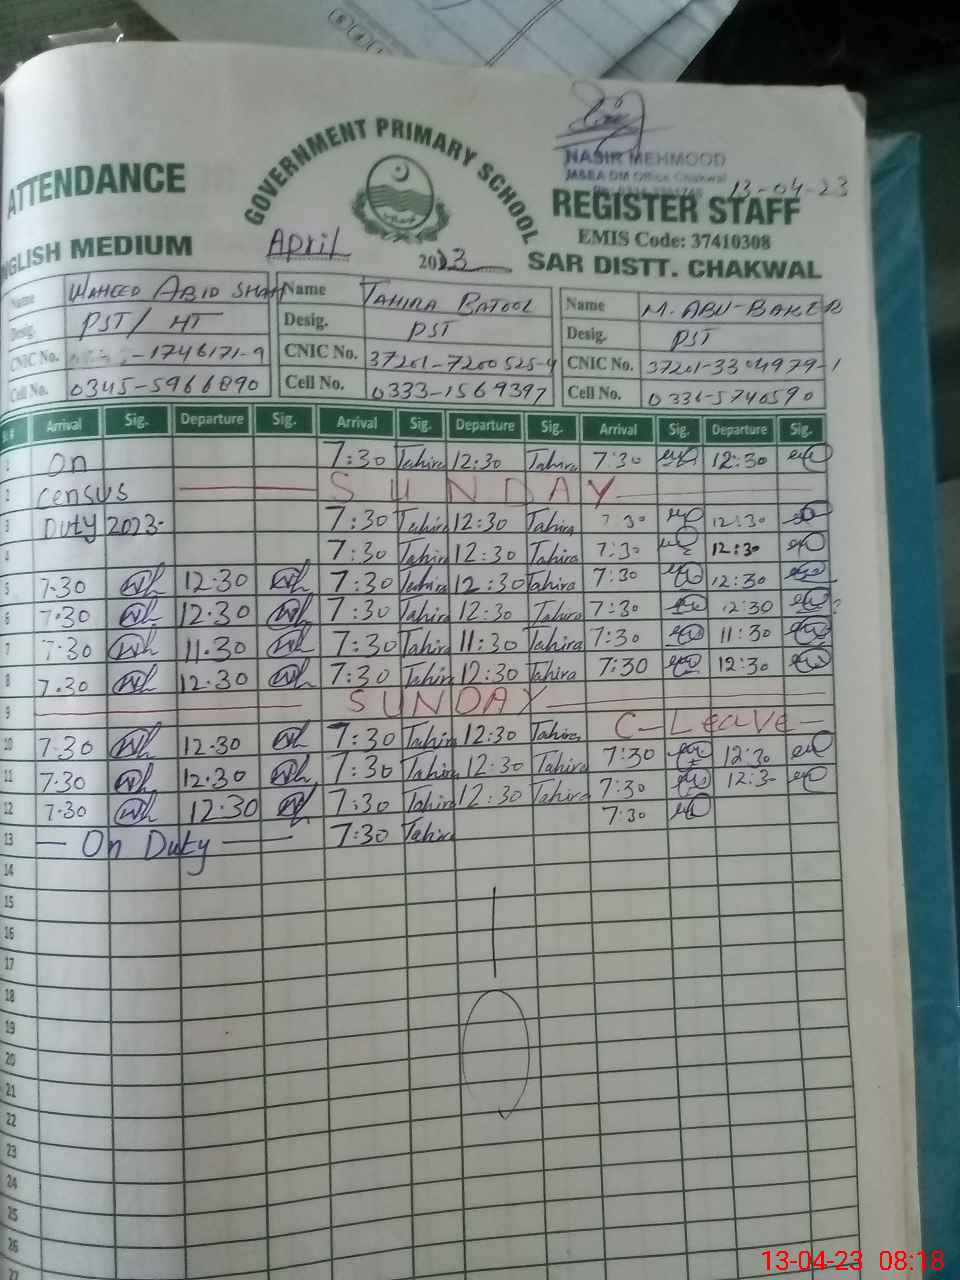 ATTENDANCE
GOVERNMENT PRIMARY SCHOOL
NASIR MEHMOOD
MSEA DM Office Chakwal
13-04-23
REGISTER STAFF
EMIS Code: 37410308
NGLISH MEDIUM
April
2023
SAR DISTT. CHAKWAL
Name WAHEED ABID SHAH Name TAHIRA BATOOL Name M. ABU-BAKER
Desig. PST/ HT Desig. PST Desig. PST
CNIC No. -1746171-9 CNIC No. 37201-7200525-4 CNIC No. 37201-3304979-1
Cell No. 0345-5966890 Cell No. 0333-1569397 Cell No. 0336-5740590
Arrival Sig. Departure Sig. Arrival Sig. Departure Sig. Arrival Sig. Departure Sig.
1 On 7:30 Tahira 12:30 Tahira 7:30 12:30
2 Census SUNDAY
3 Duty 2023- 7:30 Tahira 12:30 Tahira 7:30 12:30
4 7:30 Tahira 12:30 Tahira 7:30 12:30
5 7.30 12.30 7:30 Tahira 12:30 Tahira 7:30 12:30
6 7.30 12.30 7:30 Tahira 12:30 Tahira 7:30 12:30
7 7.30 11.30 7:30 Tahira 11:30 Tahira 7:30 11:30
8 7.30 12.30 7:30 Tahira 12:30 Tahira 7:30 12:30
9 SUNDAY
10 7.30 12.30 7:30 Tahira 12:30 Tahira C-Leave-
11 7.30 12.30 7:30 Tahira 12:30 Tahira 7:30 12:30
12 7.30 12.30 7:30 Tahira 12:30 Tahira 7:30 12:30
13 — On Duty — 7:30 Tahira 7:30
14
15
16
17
18
19
20
21
22
23
24
25
26
27
13-04-23 08:18